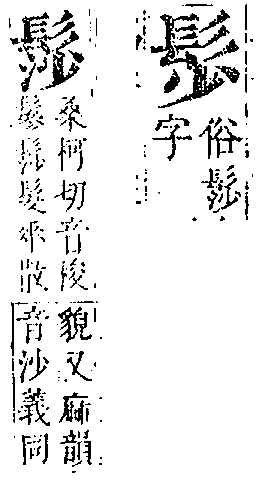 俗髿
字
髿
桑柯切音梭
鬖髿髮垂散
貌又麻韻
音沙義同